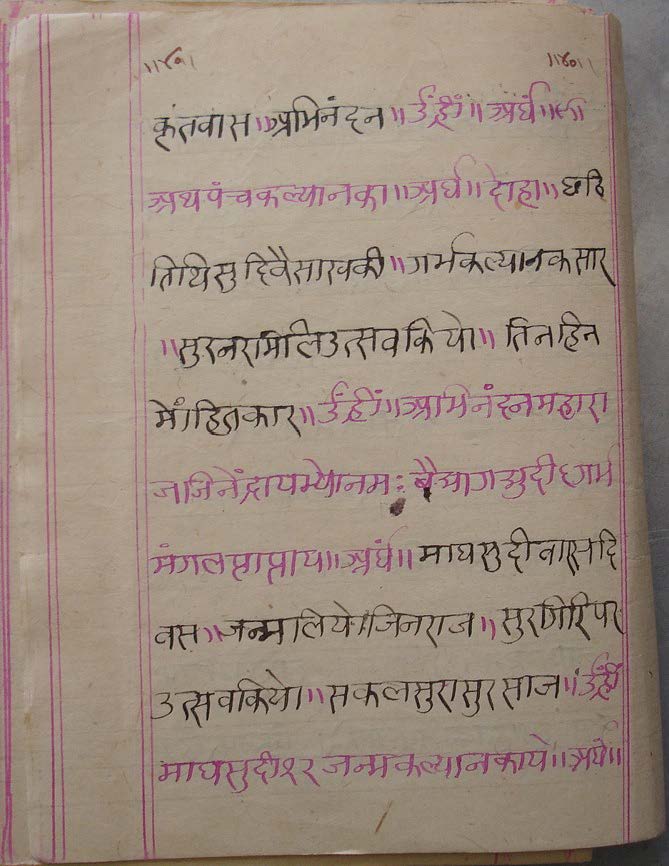 ॥४०॥ ॥४०॥
कृतवास॥अभिनंदन॥उंह्रीं॥अर्घं॥
अथपंचकल्यानका॥अर्घ॥दोहा॥छठि
तिथिसुदिवैसाखकी॥गर्भकल्यानकसार
॥सुरनरमिलिउत्सवकियो॥तिनहिन
मेंहितकार॥उंह्रीं॥अभिनंदनमहारा
जजिनेंद्रायभ्योनमः सुदी६गर्भ
मंगलप्राप्ताय॥अर्घं॥माघसुदीवारसदि
वस॥जन्मलियोजिनराज॥सुरगिरिपर
उत्सवकियो॥सकलसुरासुरसाज॥उंह्रीं
माघसुदी१२जन्मकल्यानकाये॥अर्घं॥